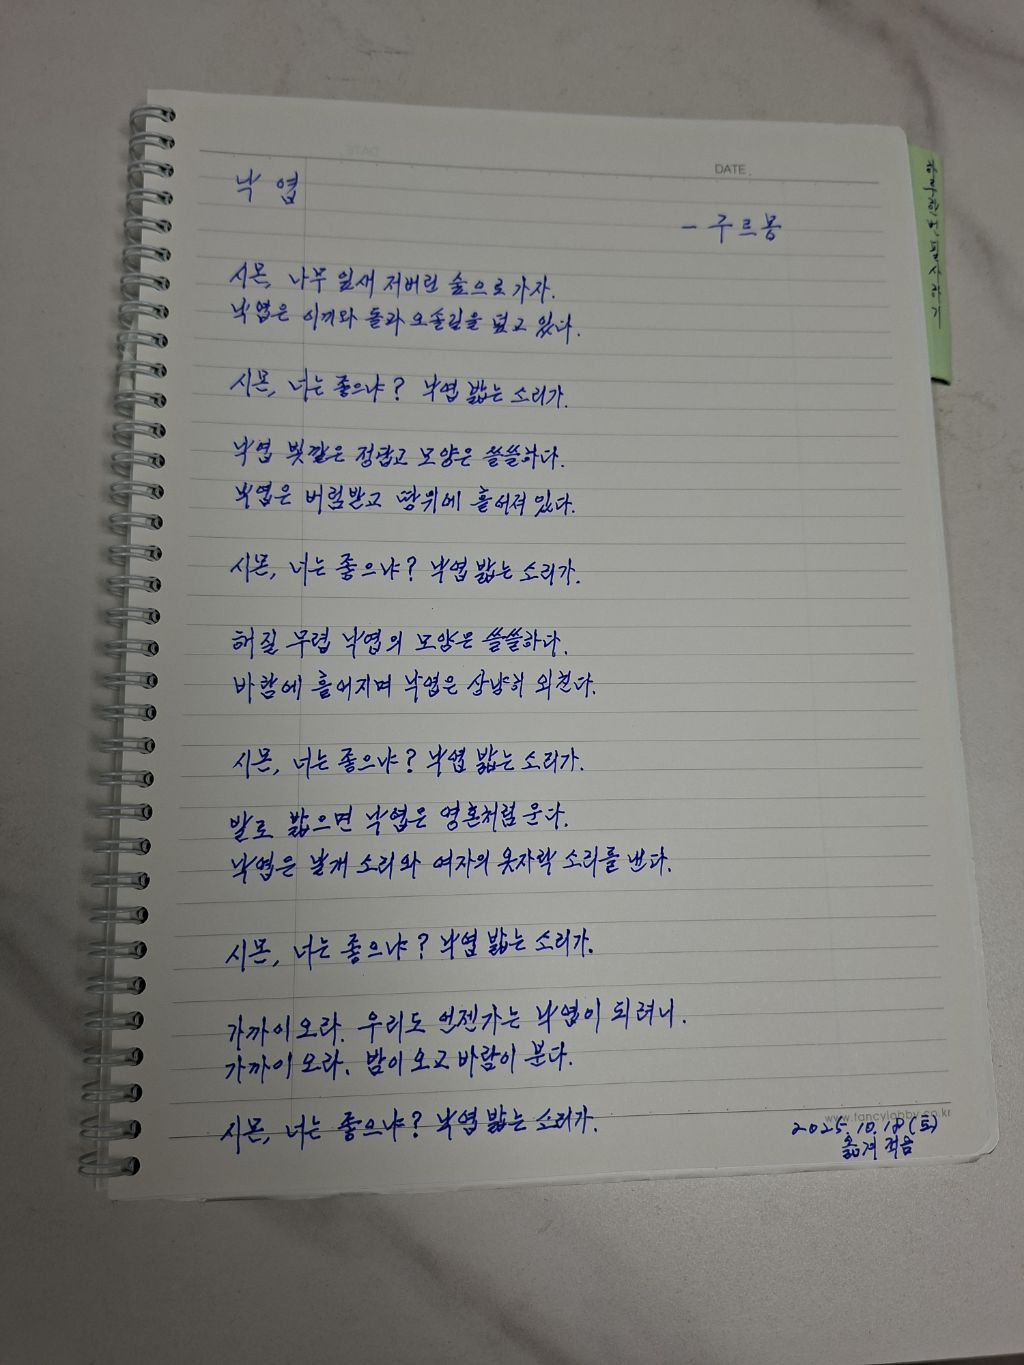 DATE.
낙엽
- 구르몽
시몬, 나무 잎새 저버린 숲으로 가자.
낙엽은 이끼와 돌과 오솔길을 덮고 있다.
시몬, 너는 좋으냐? 낙엽 밟는 소리가.
낙엽 빛깔은 정답고 모양은 쓸쓸하다.
낙엽은 버림받고 땅위에 흩어져 있다.
시몬, 너는 좋으냐? 낙엽 밟는 소리가.
해질 무렵 낙엽의 모양은 쓸쓸하다.
바람에 흩어지며 낙엽은 상냥히 외친다.
시몬, 너는 좋으냐? 낙엽 밟는 소리가.
발로 밟으면 낙엽은 영혼처럼 운다.
낙엽은 날개 소리와 여자의 옷자락 소리를 낸다.
시몬, 너는 좋으냐? 낙엽 밟는 소리가.
가까이 오라. 우리도 언젠가는 낙엽이 되려니.
가까이 오라. 밤이 오고 바람이 분다.
시몬, 너는 좋으냐? 낙엽 밟는 소리가.
www.fancylobby.co.kr
2025.10.18(토)
옮겨 적음